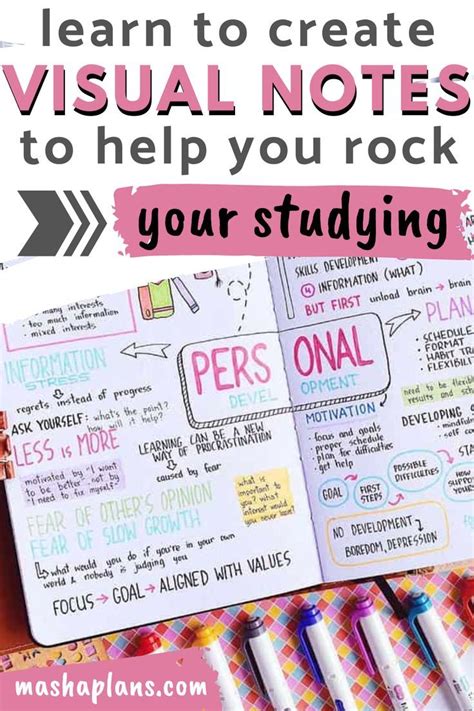 learn to create
VISUAL NOTES
to help you rock
your studying
many interests
too much information
mixed interests
INFORMATION
STRESS
regrets instead of progress
ASK YOURSELF: what's the point?
how will it help?
LESS is MORE
motivated by "I want
to be better", not by
"I need to fix myself"
LEARNING CAN BE A NEW
WAY OF PROCRASTINATION
caused by fear
FEAR OF OTHER'S OPINION
FEAR OF SLOW GROWTH
what would you do if you're in your own
world & nobody is judging you
FOCUS → GOAL → ALIGNED WITH VALUES
what is
important to
you? what
interest would
you never lose?
PERSONAL
DEVELOPMENT
SKILLS DEVELOPMENT
INFORMATION (WHAT)
BUT FIRST unload brain → brain
PLAN
SCHEDULE
FORMAT
HABIT
FLEXIBILITY
need to be
results and
MOTIVATION
focus and goals
proper schedule
plan for difficulties
get help
DEVELOPING
mindful
self
GOAL
FIRST
STEPS
POSSIBLE
DIFFICULTIES
NO DEVELOPMENT
BOREDOM, DEPRESSION
mashaplans.com